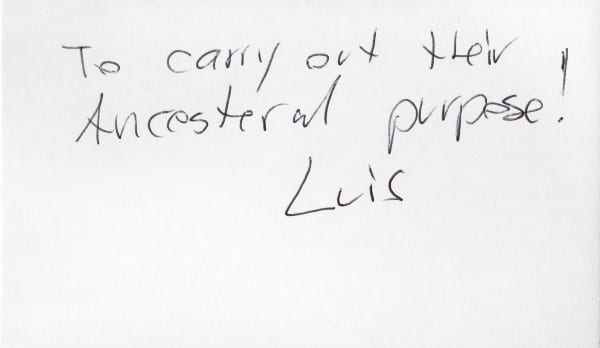 To carry out their
Ancesteral purpose!
Luis